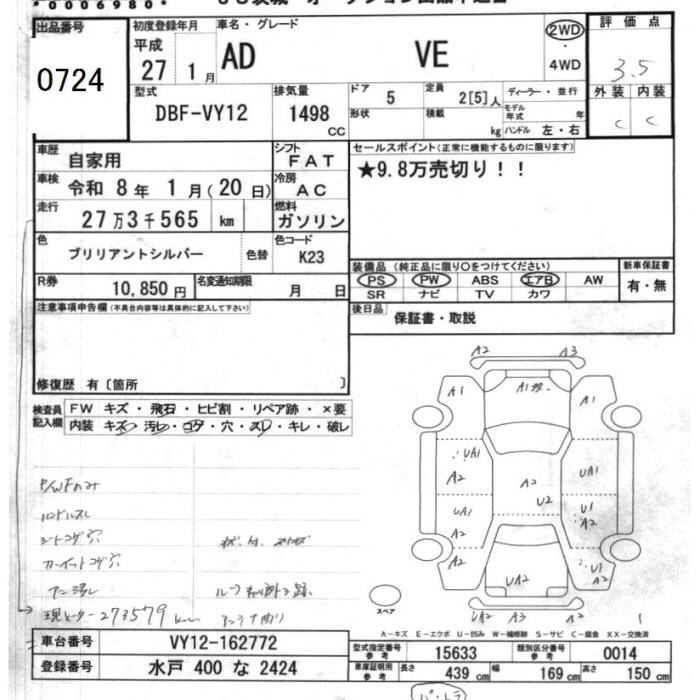 *0006980*
出品番号
0724
初度登録年月
平成
27 1月
車名・グレード
AD VE
2WD
・
4WD
評価点
3.5
外装 内装
C C
型式
DBF-VY12
排気量
1498
CC
ドア 5
形状
定員 2[5]人
積載 kg
ディーラー・並行
モデル年式 年
ハンドル 左・右
車歴
自家用
シフト
FAT
車検
令和 8年 1月(20日)
冷房
AC
走行
27万3千565 km
燃料
ガソリン
セールスポイント(正常に機能するものに限ります)
★9.8万売切り!!
色
ブリリアントシルバー
色替
色コード
K23
R券
10,850円
名変通知期限
月 日
装備品(純正品に限り○をつけてください)
PS PW ABS エアB AW
SR ナビ TV カワ
新車保証書
有・無
後日品
保証書・取説
注意事項申告欄(不具合内容等は具体的に記入して下さい)
修復歴 有〔箇所 〕
検査員
記入欄
FW キズ・飛石・ヒビ割・リペア跡・×要
内装 キズ・汚レ・コゲ・穴・スレ・キレ・破レ
P/WFのみ
ハンドルスレ
シートコゲ穴
カーペットコゲ穴
273579 km
アンテナ曲り
A2 A3
A1 A1 A1
UA1
A2
A2
U2
UA1
UA1
A2
U1
A2
A2
UA2
U1
A2
UA2 A3 A2
スペア
A-キズ E-エクボ U-凹み W-補修跡 S-サビ C-腐食 XX-交換済
車台番号
VY12-162772
登録番号
水戸 400 な 2424
型式指定番号
参考
15633
類別区分番号
参考
0014
車庫証明用
参考
長さ 439 cm
幅 169 cm
高さ 150 cm